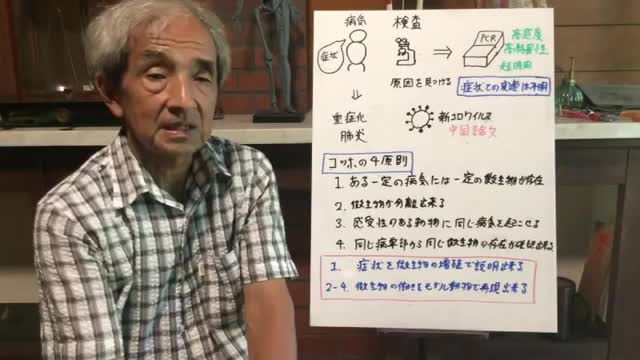 病気
検査
症状
PCR
高感度
高特異性
短時間
原因を見つける
症状との関連は不明
重症化
肺炎
新コロウイルス
中国論文
コッホの4原則
1. ある一定の病気には一定の微生物が存在
2. 微生物が分離出来る
3. 感受性のある動物に同じ病気を起こせる
4. 同じ病巣部から同じ微生物の存在が確認出来る
1. 症状を微生物の増殖で説明出来る
2-4. 微生物の働きをモデル動物で再現出来る